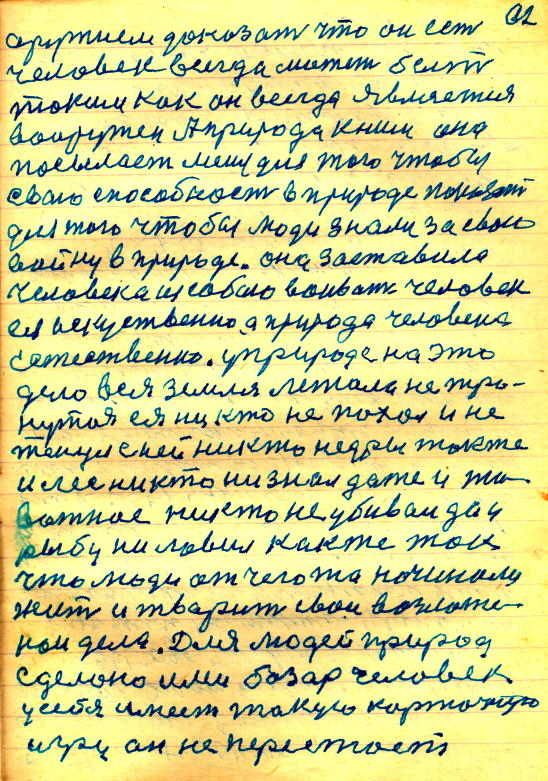 32
оружием доказат что он ест
человек всегда может быт
таким как он всегда является
вооружен А природа к ним она
посылает меня для того чтобы
свою способност в природе показат
для того чтобы люди знали за свою
войну в природе. она заставила
человека из собою воиват человек
ея искуственно, а природа человека
естественно. у природе на это
дело вся земля лежала не тро-
нутоя ея ни кто не похал и не
тенул с ней никто недры также
и лес никто ни знал даже и жи-
вотное никто не убивал да и
рыбу ни ловил как же так
что люди от чего то начинали
жит и тварит свои возложе-
нои дела. Для людей природа
сделоно ими базар человек
у себя имеет такую карточную
игру он не перестоет